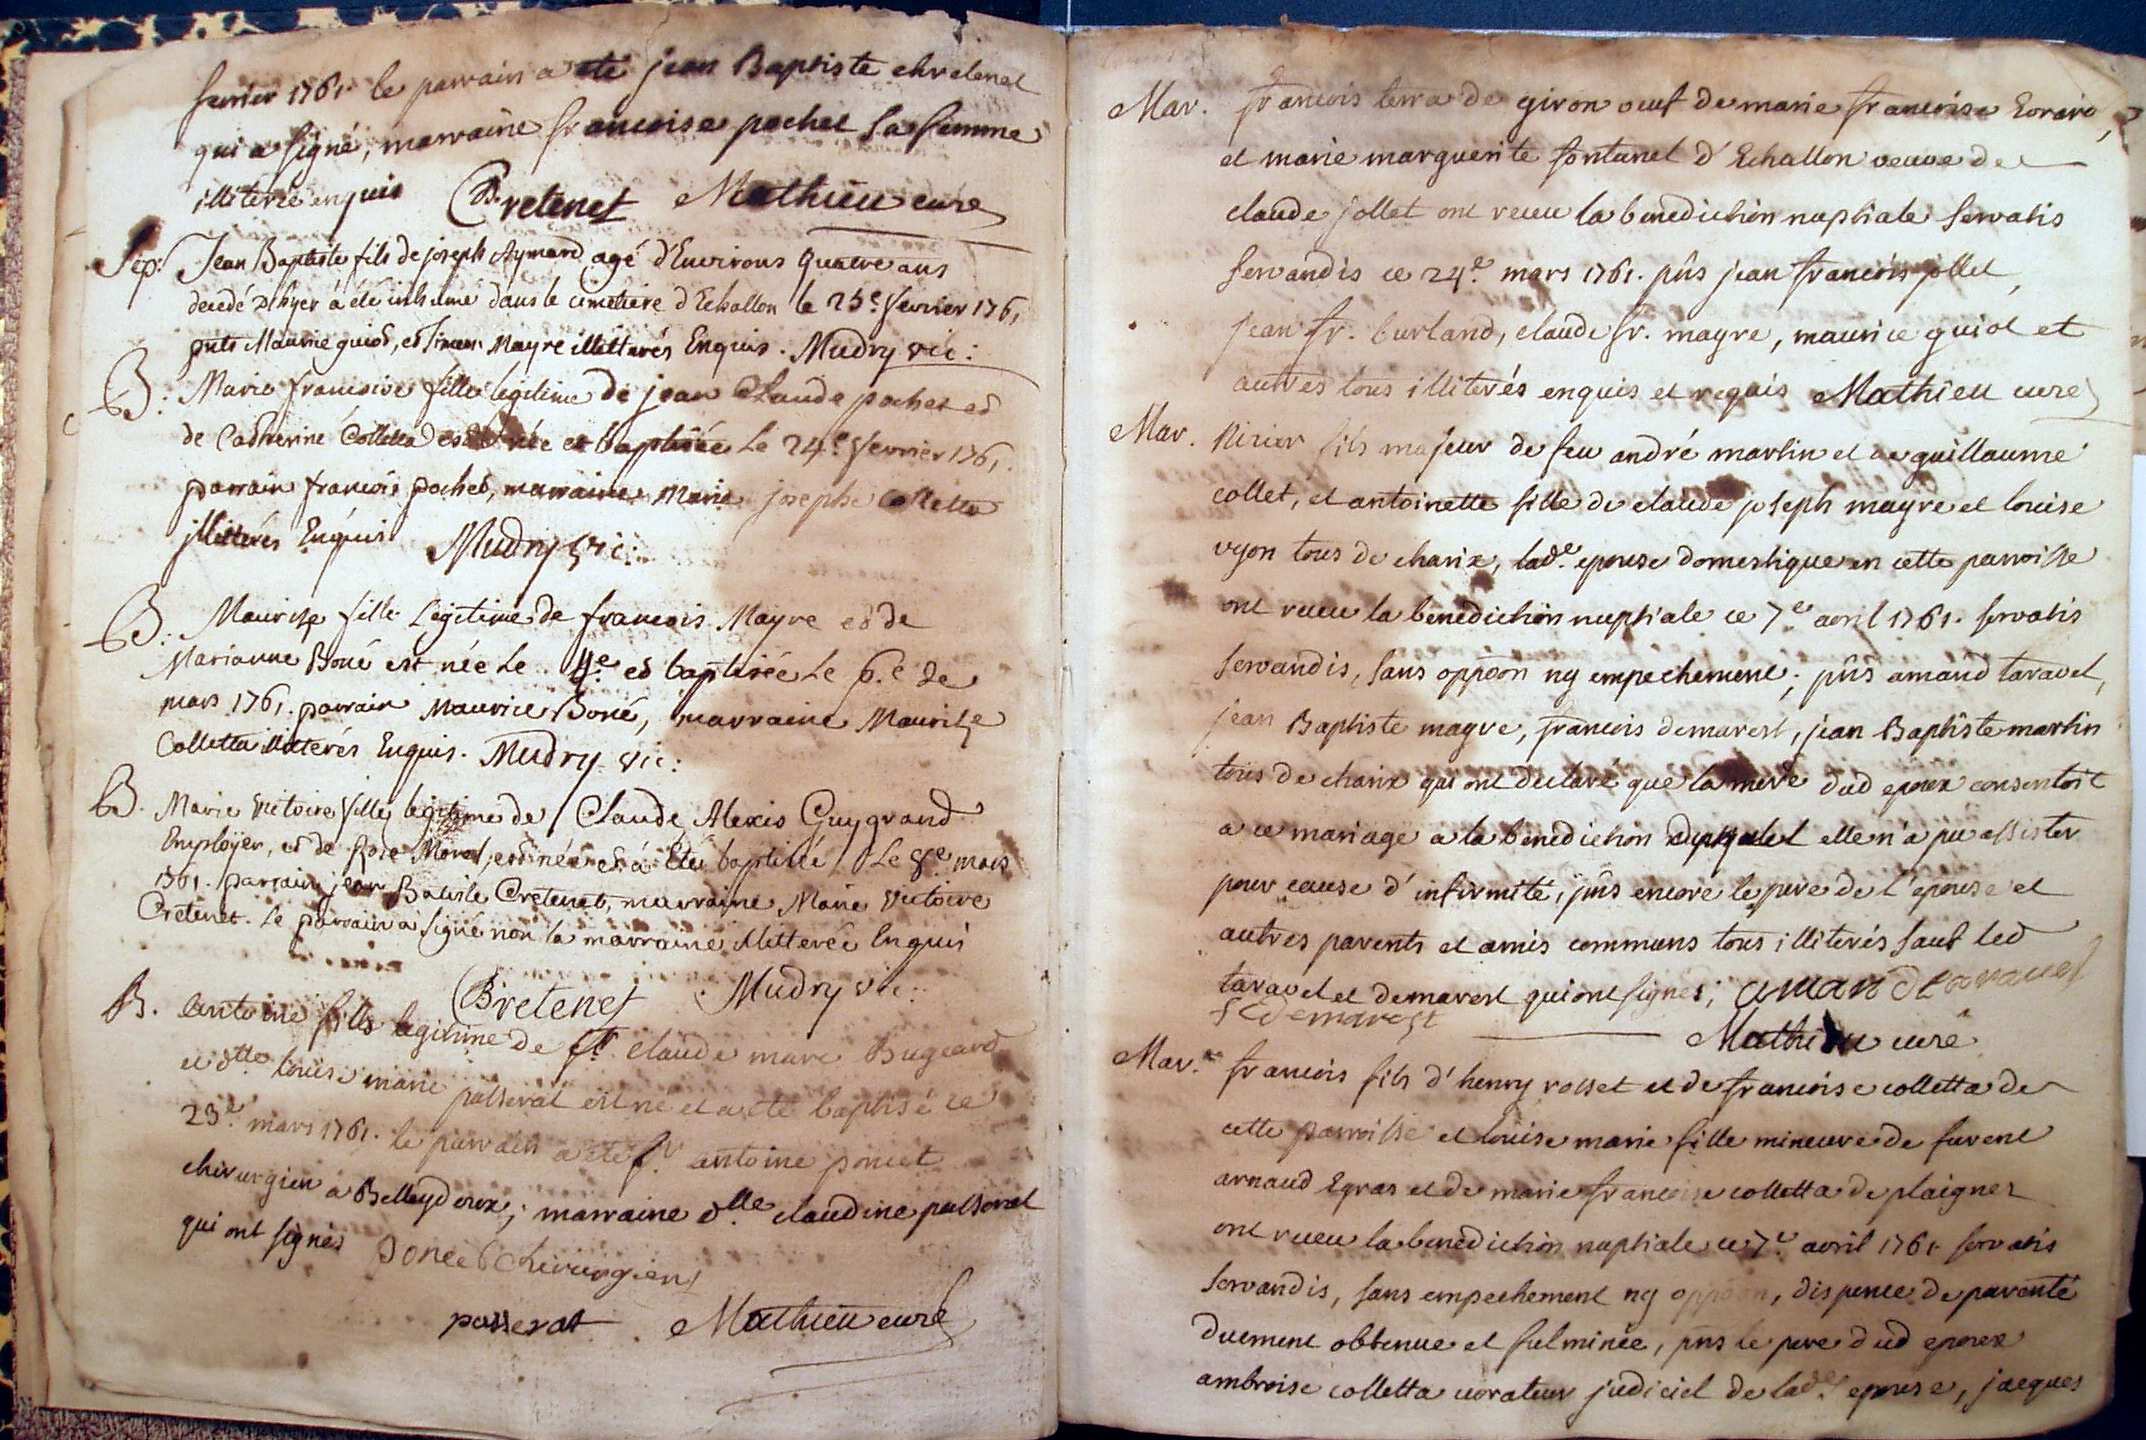 fevrier 1761. le parrain a eté jean Baptiste chretenet
qui a signé, marraine francoise pochet sa femme
illiterée enquis Cretenet Mathieu curé
Sep: Jean Baptiste fils de joseph Aymard agé d'Environs quatre ans
decedé d'hyer à été inhumé dans le cimetiere d'Echallon le 25e. fevrier 1761
pnts Maurice guiod, et Simeon Mayre illitterés Enquis. Mudry vic:
B: Marie francoise fille legitime de jean Claude pochet et
de Catherine Colletta est née et baptisée le 24e. fevrier 1761.
parrain francois pochet, marraine Marie josephe Colletta
jllitterés Enquis Mudry vic:
B: Maurise fille Legitime de francois Mayre et de
Marianne Boné est née le 4e. et baptisée le 6.e de
mars 1761. parrain Maurice Boné, marraine Maurise
Colletta illiterés Enquis. Mudry vic:
B. Marie Victoire fille legitime de Claude Alexis Guygrand
Employer, et de Rose Moral, est née et à été baptisée le 8e mars
1761. parrain jean Batiste Cretenet, marraine Marie Victoire
Cretenet. Le parrain a signé non la marraine illitterée Enquis
Cretenet Mudry vic:
B. Antoine fills legitime de sr. claude marc Bugeard
et dtte louise marie passerat est né et a eté baptisé ce
23e. mars 1761. le parrain a eté sr antoine poncet
chirurgien a Belleydoux; marraine dlle claudine passerat
qui ont signés poncet chirurgien
passerat Mathieu curé
Mar. francois terra de giron veuf de marie francoise
et marie marguerite fontanel d'Echallon veuve de
claude jollet ont receu la benediction nuptiale servatis
servandis ce 24e. mars 1761. pñs jean francois jollet,
jean fr. burland, claude fr. mayre, maurice guiol et
autres tous illiterés enquis et requis Mathieu curé
Mar. Nizier fils majeur de feu andré martin et de guillaume
collet, et antoinette fille de claude joseph mayre et louise
vyon tous de charix, lade. epouse domestique en cette parroisse
ont receu la benediction nuptiale ce 7e. avril 1761. servatis
servandis, sans oppoon ny empechement; pñs amand taravel,
jean Baptiste mayre, francois demarest, jean Baptiste martin
tous de charix qui ont declaré que la mere dud epoux consentoit
a ce mariage a la benediction duquel elle n'a pu assister
pour cause d'infirmité, pñs encore le pere de l'epouse et
autres parents et amis communs tous illiterés sauf led
taravel et demarest qui ont signés; aman dtaravel
f demarest Mathieu curé
Mar. francois fils d'henry rosset et de francoise colletta de
cette parroisse et louise marie fille mineure de furent
arnaud Egras et de marie francoise colletta de plaignes
ont receu la benediction nuptiale ce 7e. avril 1761 servatis
servandis, sans empechement ny oppoon, dispence de parenté
duement obtenue et fulminée, pñs le pere dud epoux
ambroise colletta curateur judiciel de lade. epouse, jacques